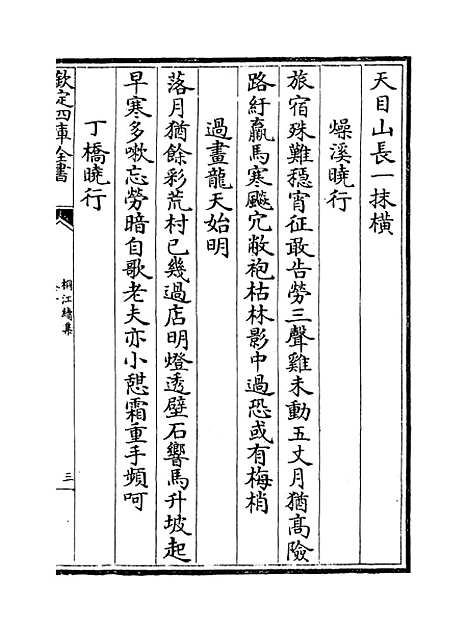 天目山長一抹橫
燥溪曉行
旅宿殊難穩宵征敢告勞三聲雞未動五丈月猶髙險
路紆羸馬寒飈冗敝袍枯林影中過恐或有梅梢
過畫龍天始明
落月猶餘彩荒村已幾過店明燈透壁石響馬升坡起
早寒多嗽忘勞暗自歌老夫亦小憇霜重手頻呵
丁橋曉行
欽定四庫全書
桐江續集
三